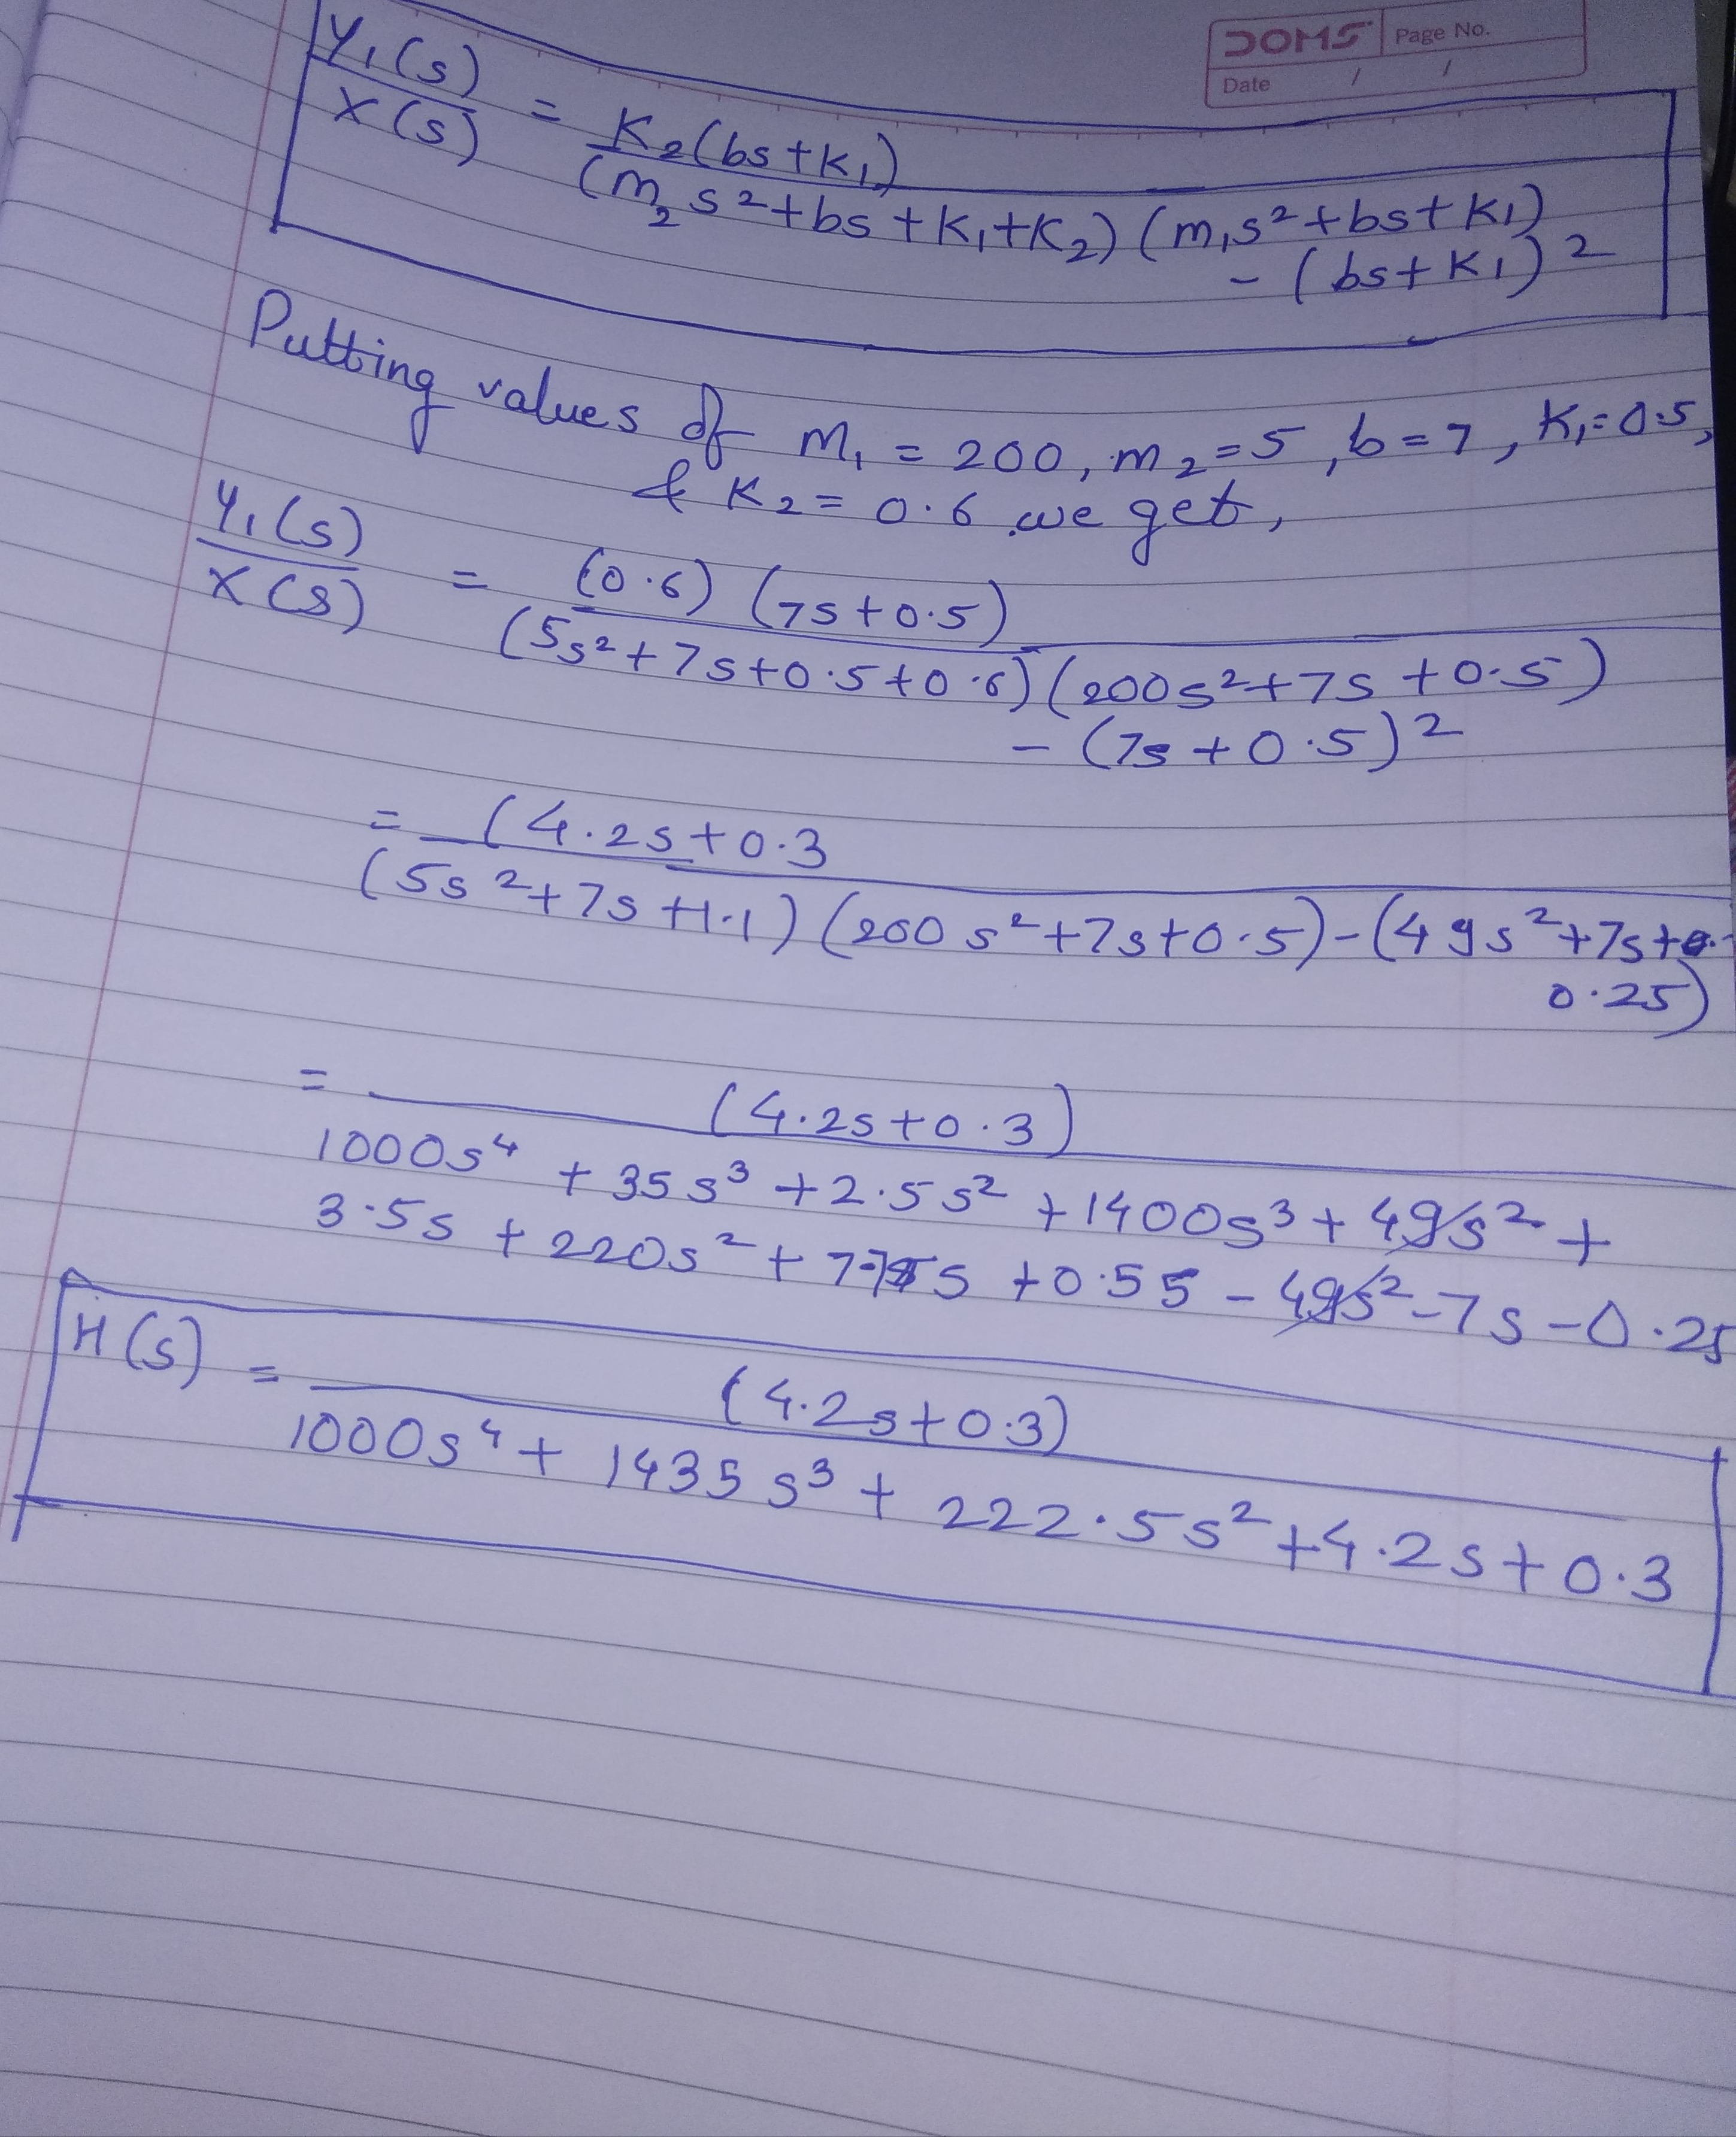 DOMS Page No.
Date / /
Y₁(s)/X(s) = K₂(bs+K₁)
(m₂s²+bs+K₁+K₂)(m₁s²+bs+K₁)
-(bs+K₁)²
Putting values of m₁ = 200, m₂=5, b=7, K₁=0.5,
& K₂= 0.6 we get,
Y₁(s)/X(s) = (0.6) (7s+0.5)
(5s²+7s+0.5+0.6)(200s²+7s+0.5)
-(7s+0.5)²
= (4.2s+0.3
(5s²+7s+1.1)(200s²+7s+0.5)-(49s²+7s+
0.25)
= (4.2s+0.3)
1000s⁴ + 35s³ +2.5s² +1400s³+49s² +
3.5s +220s² + 7.7s +0.55 -49s²-7s-0.25
H(s) = (4.2s+0.3)
1000s⁴+ 1435s³+ 222.5s²+4.2s+0.3